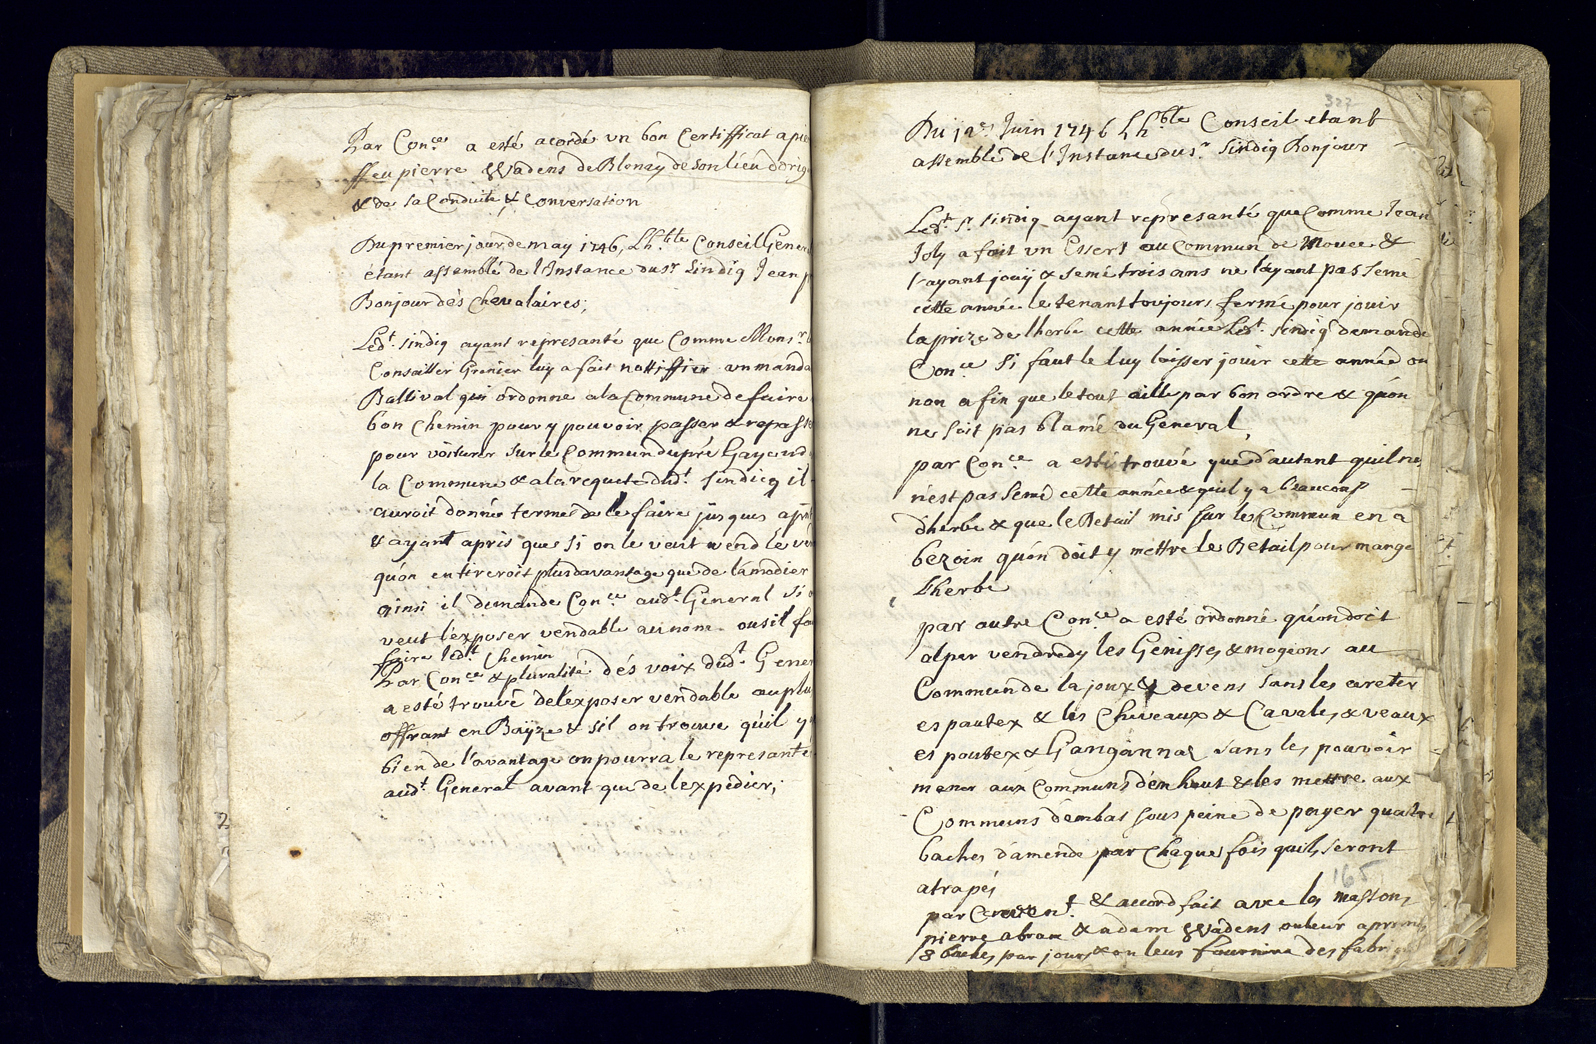 Par Con.ce a esté acordé vn bon Certifficat a pie
ffeu pierre Wadens de Blonay de son lieu dorig
& de sa Conduite & Conversation
Du premier jour de may 1746, Lh.ble Conseil Gener
étant assemblé de l'Instance du sr. Sindiq Jean p
Bonjour dés Chevalaires;
Led.t Sindiq ayant represanté que Comme Mons.r
Consailler Grenier luy a fait nottiffier un manda
Ballival qui ordonne a la Commune de faire
bon Chemin pour y pouvoir passer & repasse
pour voiturer sur le Commun du pré Gayoud
la Commune & a la requete dud.t Sindicq il
auroit donné terme de le faire jusques apre
& ayant apris que si on le veut vend le
quon en tireroit plus davantage que de lamodier
ainsi il demande Con.ce aud.t General Si
veut lexposer vendable au nom ou sil fa
faire led.t Chemin
Par Con.ce & pluralité dés voix dud.t Gener
a esté trouvé de lexposer vendable au plu
offrant en Bayze & sil on trouve quil y
bien de lavantage on pourra le represante
aud.t General avant que de lexpedier;
327
Du 12e. Juin 1746 Lh.ble Conseil etant
assemblé de l'Instance du sr. Sindiq Bonjour
Led.t Sr. Sindiq ayant represanté que Comme Jean
Joly a fait vn Essert au Commun de Mouee &
l'ayant jouÿ & semé trois ans ne layant pas semé
cette année le tenant toujours fermé pour jouir
la prize de lherbe cette année Led.t Sindiq demande
Con.ce Si faut le luy laisser jouir cette année ou
non afin que le tout aille par bon ordre & quon
ne soit pas blamé du General,
par Con.ce a esté trouvé que d'autant quil ne
n'est pas semé cette année & quil y a beaucoup
dherbe & que le Betail mis sur les Commun en a
bezoin, quon doit y mettre le Betail pour mange
Lherbe
par autre Con.ce a esté ordonné quon doit
alper vendredy les Genisses & mogeons au
Commun de la joux & devens sans les areter
es pautex & les Chevaux & Cavales & veaux
es pautex & Gangannaz sans les pouvoir
mener aux Communs den haut & les mettre aux
Communs dembas sous peine de payer quatre
baches d'amende par Chaque fois quils seront
atrapés
165
par & accord fait avec les massons
pierre abram & adam Wadens on leur a promis
8 baches par jour & on leur fournira des